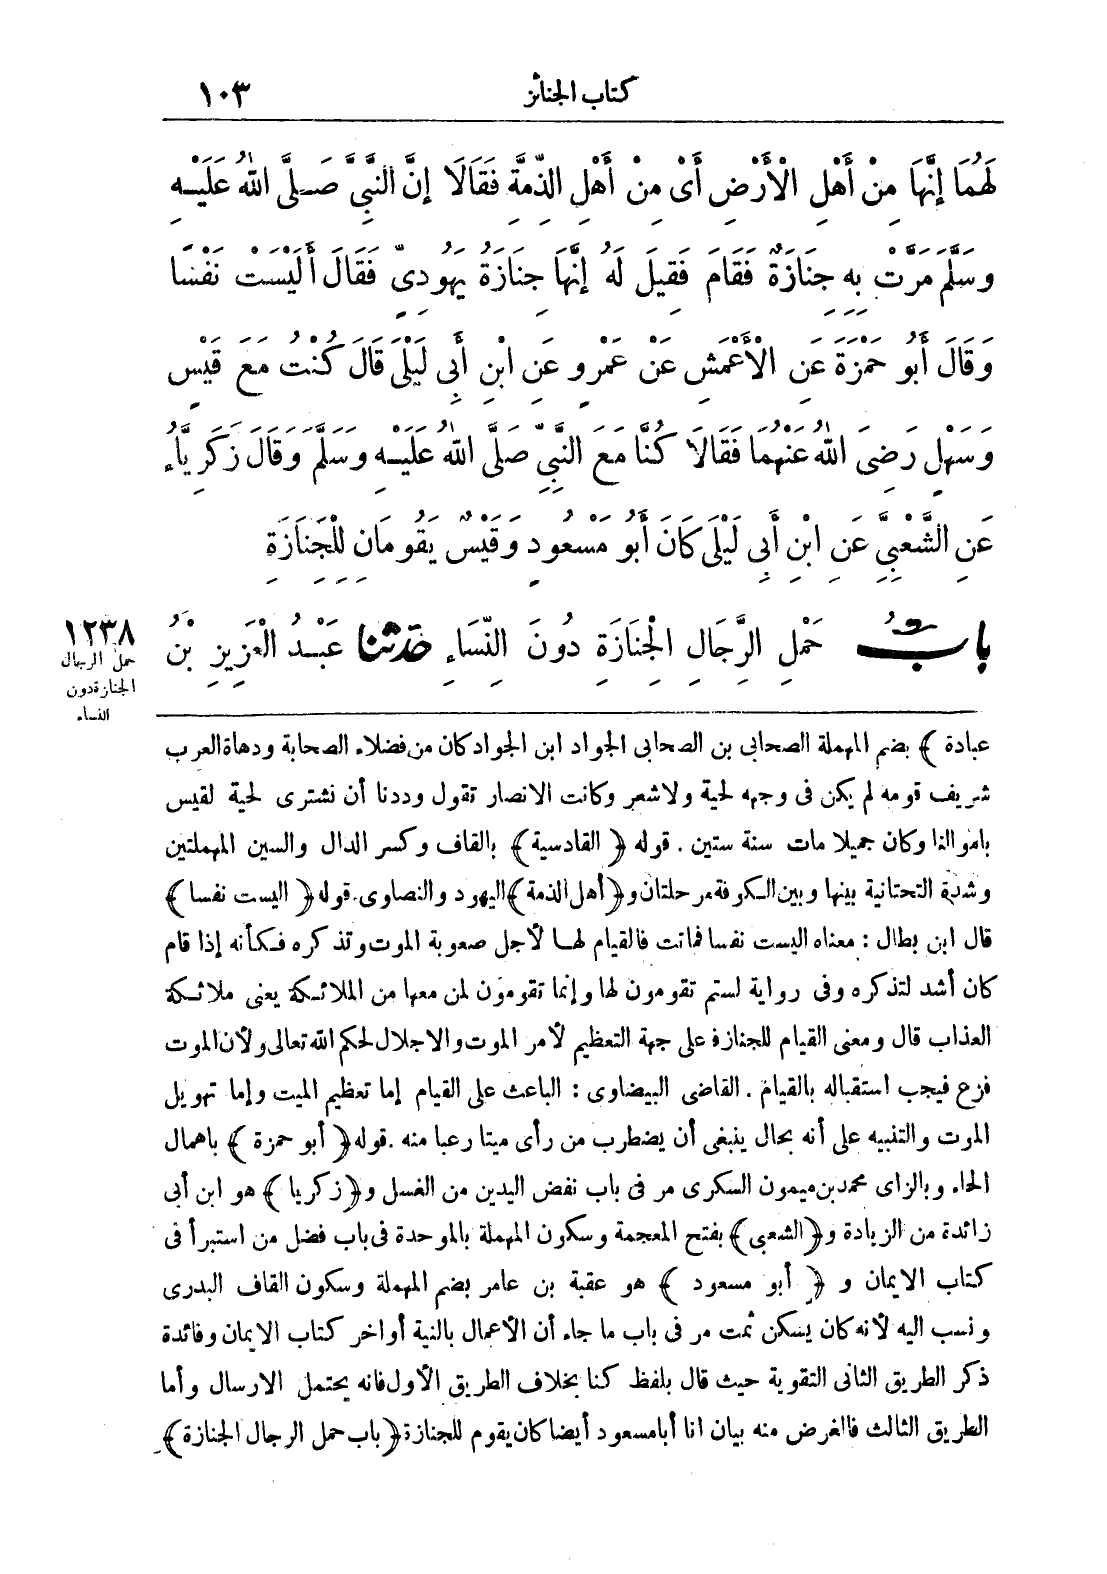 كتاب الجنائز
١٠٣
لَهُمَا إِنَّهَا مِنْ أَهْلِ الْأَرْضِ أَىْ مِنْ أَهْلِ الذِّمَّةِ فَقَالَا إِنَّ النَّبِىَّ صَلَّى اللهُ عَلَيْهِ
وَسَلَّمَ مَرَّتْ بِهِ جِنَازَةٌ فَقَامَ فَقِيلَ لَهُ إِنَّهَا جِنَازَةُ يَهُودِىٍّ فَقَالَ أَلَيْسَتْ نَفْسًا
وَقَالَ أَبُو حَمْزَةَ عَنِ الْأَعْمَشِ عَنْ عَمْرٍو عَنِ ابْنِ أَبِى لَيْلَى قَالَ كُنْتُ مَعَ قَيْسٍ
وَسَهْلٍ رَضِىَ اللهُ عَنْهُمَا فَقَالَا كُنَّا مَعَ النَّبِىِّ صَلَّى اللهُ عَلَيْهِ وَسَلَّمَ وَقَالَ زَكَرِيَّاءُ
عَنِ الشَّعْبِىِّ عَنِ ابْنِ أَبِى لَيْلَى كَانَ أَبُو مَسْعُودٍ وَقَيْسٌ يَقُومَانِ لِلْجَنَازَةِ
بَابُ حَمْلِ الرِّجَالِ الْجِنَازَةَ دُونَ النِّسَاءِ حَدَّثَنَا عَبْدُ الْعَزِيزِ بْنُ
١٢٣٨
حمل الرجال
الجنازة دون
النساء
عبادة ﴾ بضم المهملة الصحابى بن الصحابى الجواد ابن الجواد كان من فضلاء الصحابة ودهاة العرب
شريف قومه لم يكن فى وجهه لحية ولا شعر وكانت الانصار تقول وددنا أن نشترى لحية لقيس
باموالنا وكان جميلا مات سنة ستين . قوله ﴿ القادسية ﴾ بالقاف وكسر الدال والسين المهملتين
وشدة التحتانية بينها وبين الكوفة مرحلتان و ﴿ أهل الذمة ﴾ اليهود والنصارى . قوله ﴿ اليست نفسا ﴾
قال ابن بطال : معناه اليست نفسا فماتت فالقيام لها لأجل صعوبة الموت وتذكره فكأنه إذا قام
كان أشد لتذكره وفى رواية لستم تقومون لها وإنما تقومون لمن معها من الملائكة يعنى ملائكة
العذاب قال ومعنى القيام للجنازة على جهة التعظيم لأمر الموت والاجلال لحكم الله تعالى ولأن الموت
فزع فيجب استقباله بالقيام . القاضى البيضاوى : الباعث على القيام إما تعظيم الميت وإما تهويل
الموت والتنبيه على أنه بحال ينبغى أن يضطرب من رأى ميتا رعبا منه . قوله ﴿ أبو حمزة ﴾ باهمال
الحاء وبالزاى محمد بن ميمون السكرى مر فى باب نفض اليدين من الغسل و ﴿ زكريا ﴾ هو ابن أبى
زائدة من الزيادة و ﴿ الشعبى ﴾ بفتح المعجمة وسكون المهملة بالموحدة فى باب فضل من استبرأ فى
كتاب الايمان و ﴿ أبو مسعود ﴾ هو عقبة بن عامر بضم المهملة وسكون القاف البدرى
ونسب اليه لأنه كان يسكن ثمت مر فى باب ما جاء أن الأعمال بالنية أواخر كتاب الايمان وفائدة
ذكر الطريق الثانى التقوية حيث قال بلفظ كنا بخلاف الطريق الأول فانه يحتمل الارسال وأما
الطريق الثالث فالغرض منه بيان انا أبا مسعود أيضا كان يقوم للجنازة ﴿ باب حمل الرجال الجنازة ﴾